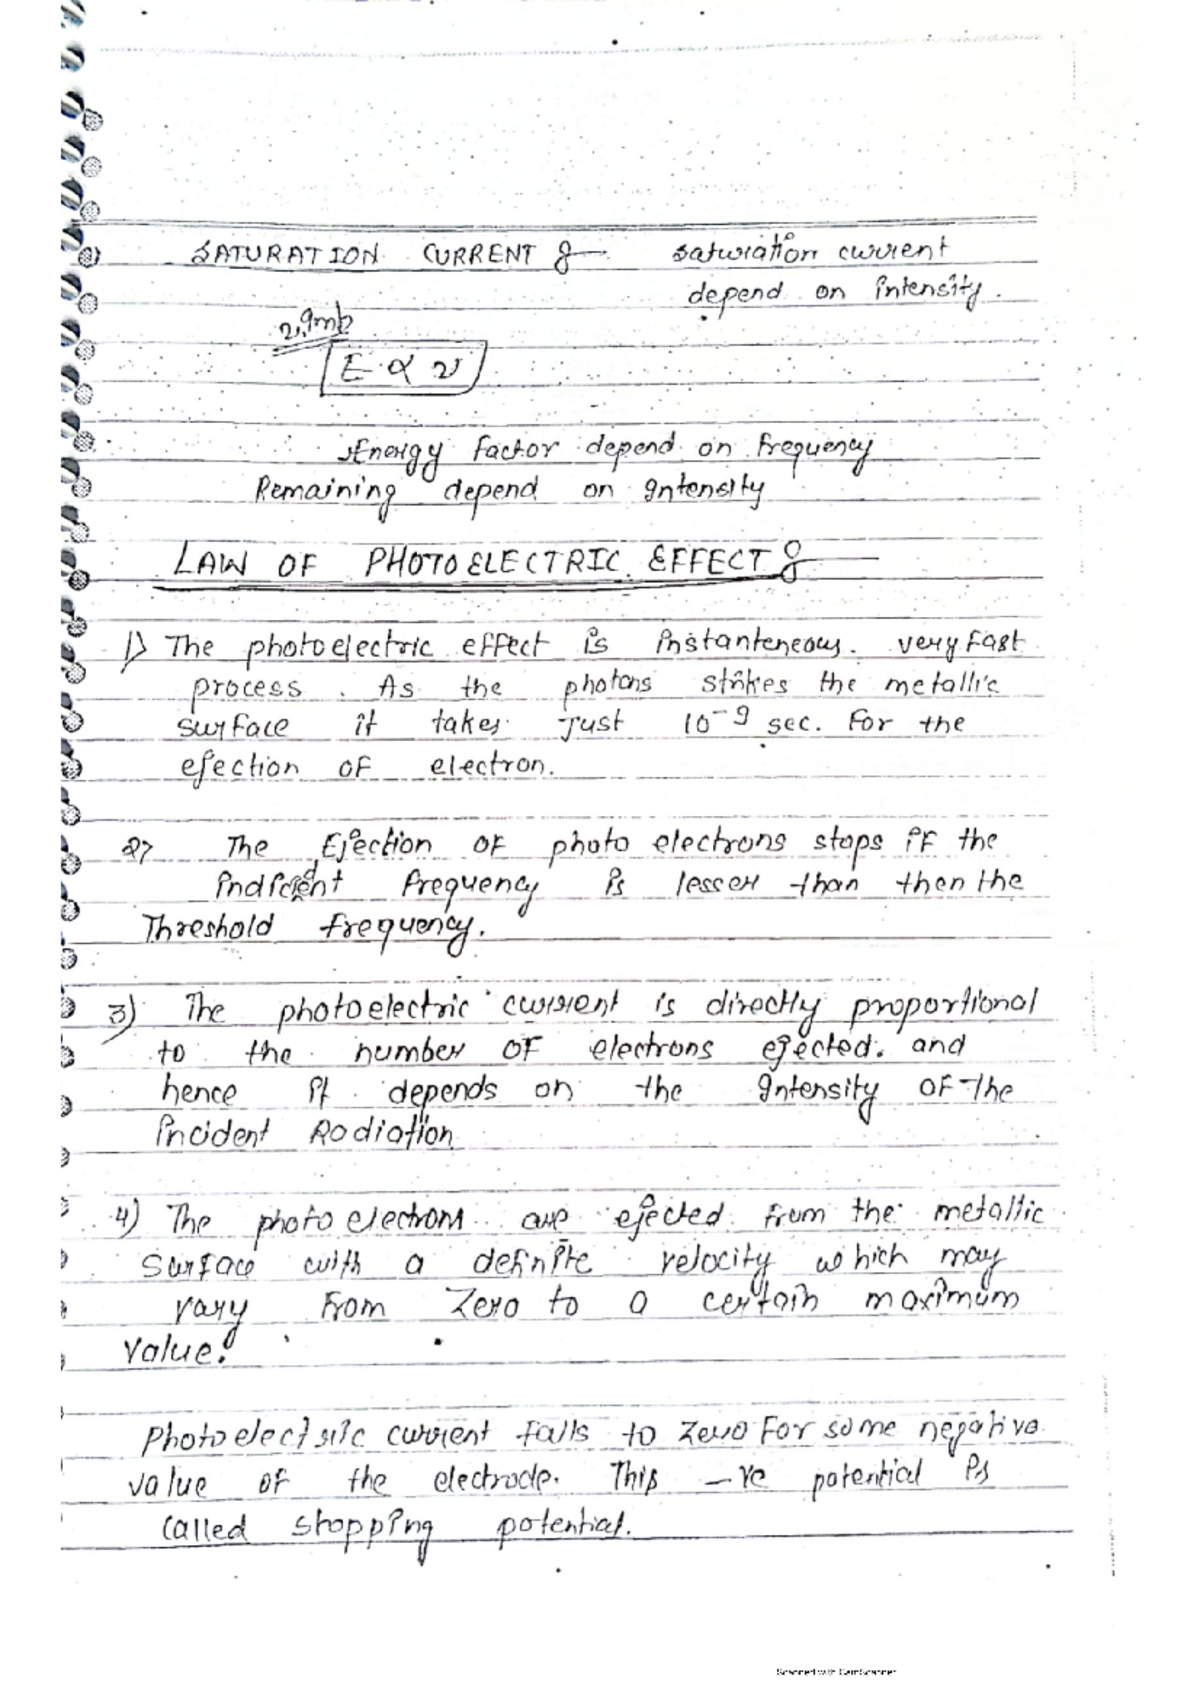 SATURATION CURRENT :— saturation current
depend on intensity.
v.Imp
E ∝ ν
Energy factor depend on frequency
Remaining depend on Intensity
LAW OF PHOTOELECTRIC EFFECT :—
1) The photoelectric effect is instanteneous. very fast
process. As the photons strikes the metallic
surface it takes Just 10⁻⁹ sec. For the
ejection of electron.
2) The Ejection of photo electrons stops if the
frequency is lesser than then the
Threshold frequency.
3) The photoelectric current is directly proportional
to the number of electrons ejected. and
hence it depends on the Intensity of the
incident Radiation
4) The photo electrons are ejected from the metallic
Surface with a definite velocity which may
vary from Zero to a certain maximum
value.
Photoelectric current falls to zero for some negative
value of the electrode. This -ve potential is
called stopping potential.
Scanned with CamScanner